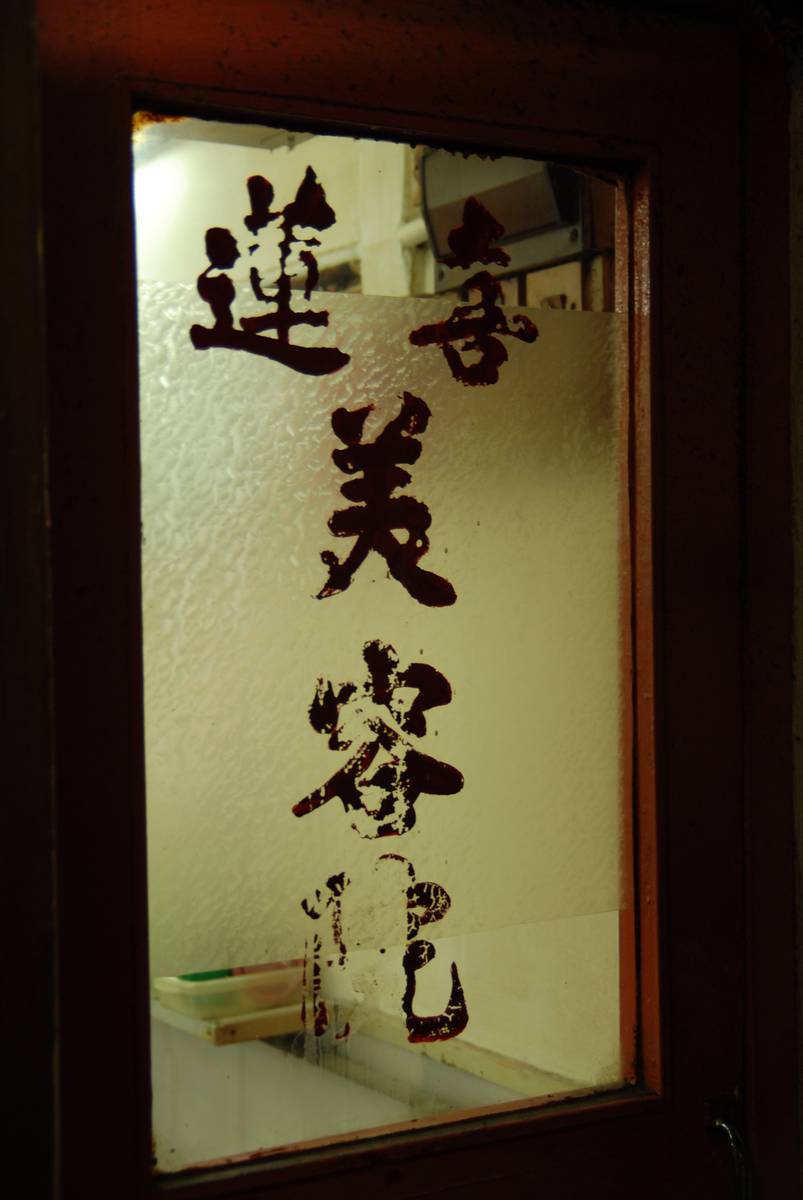 喜蓮
美容院